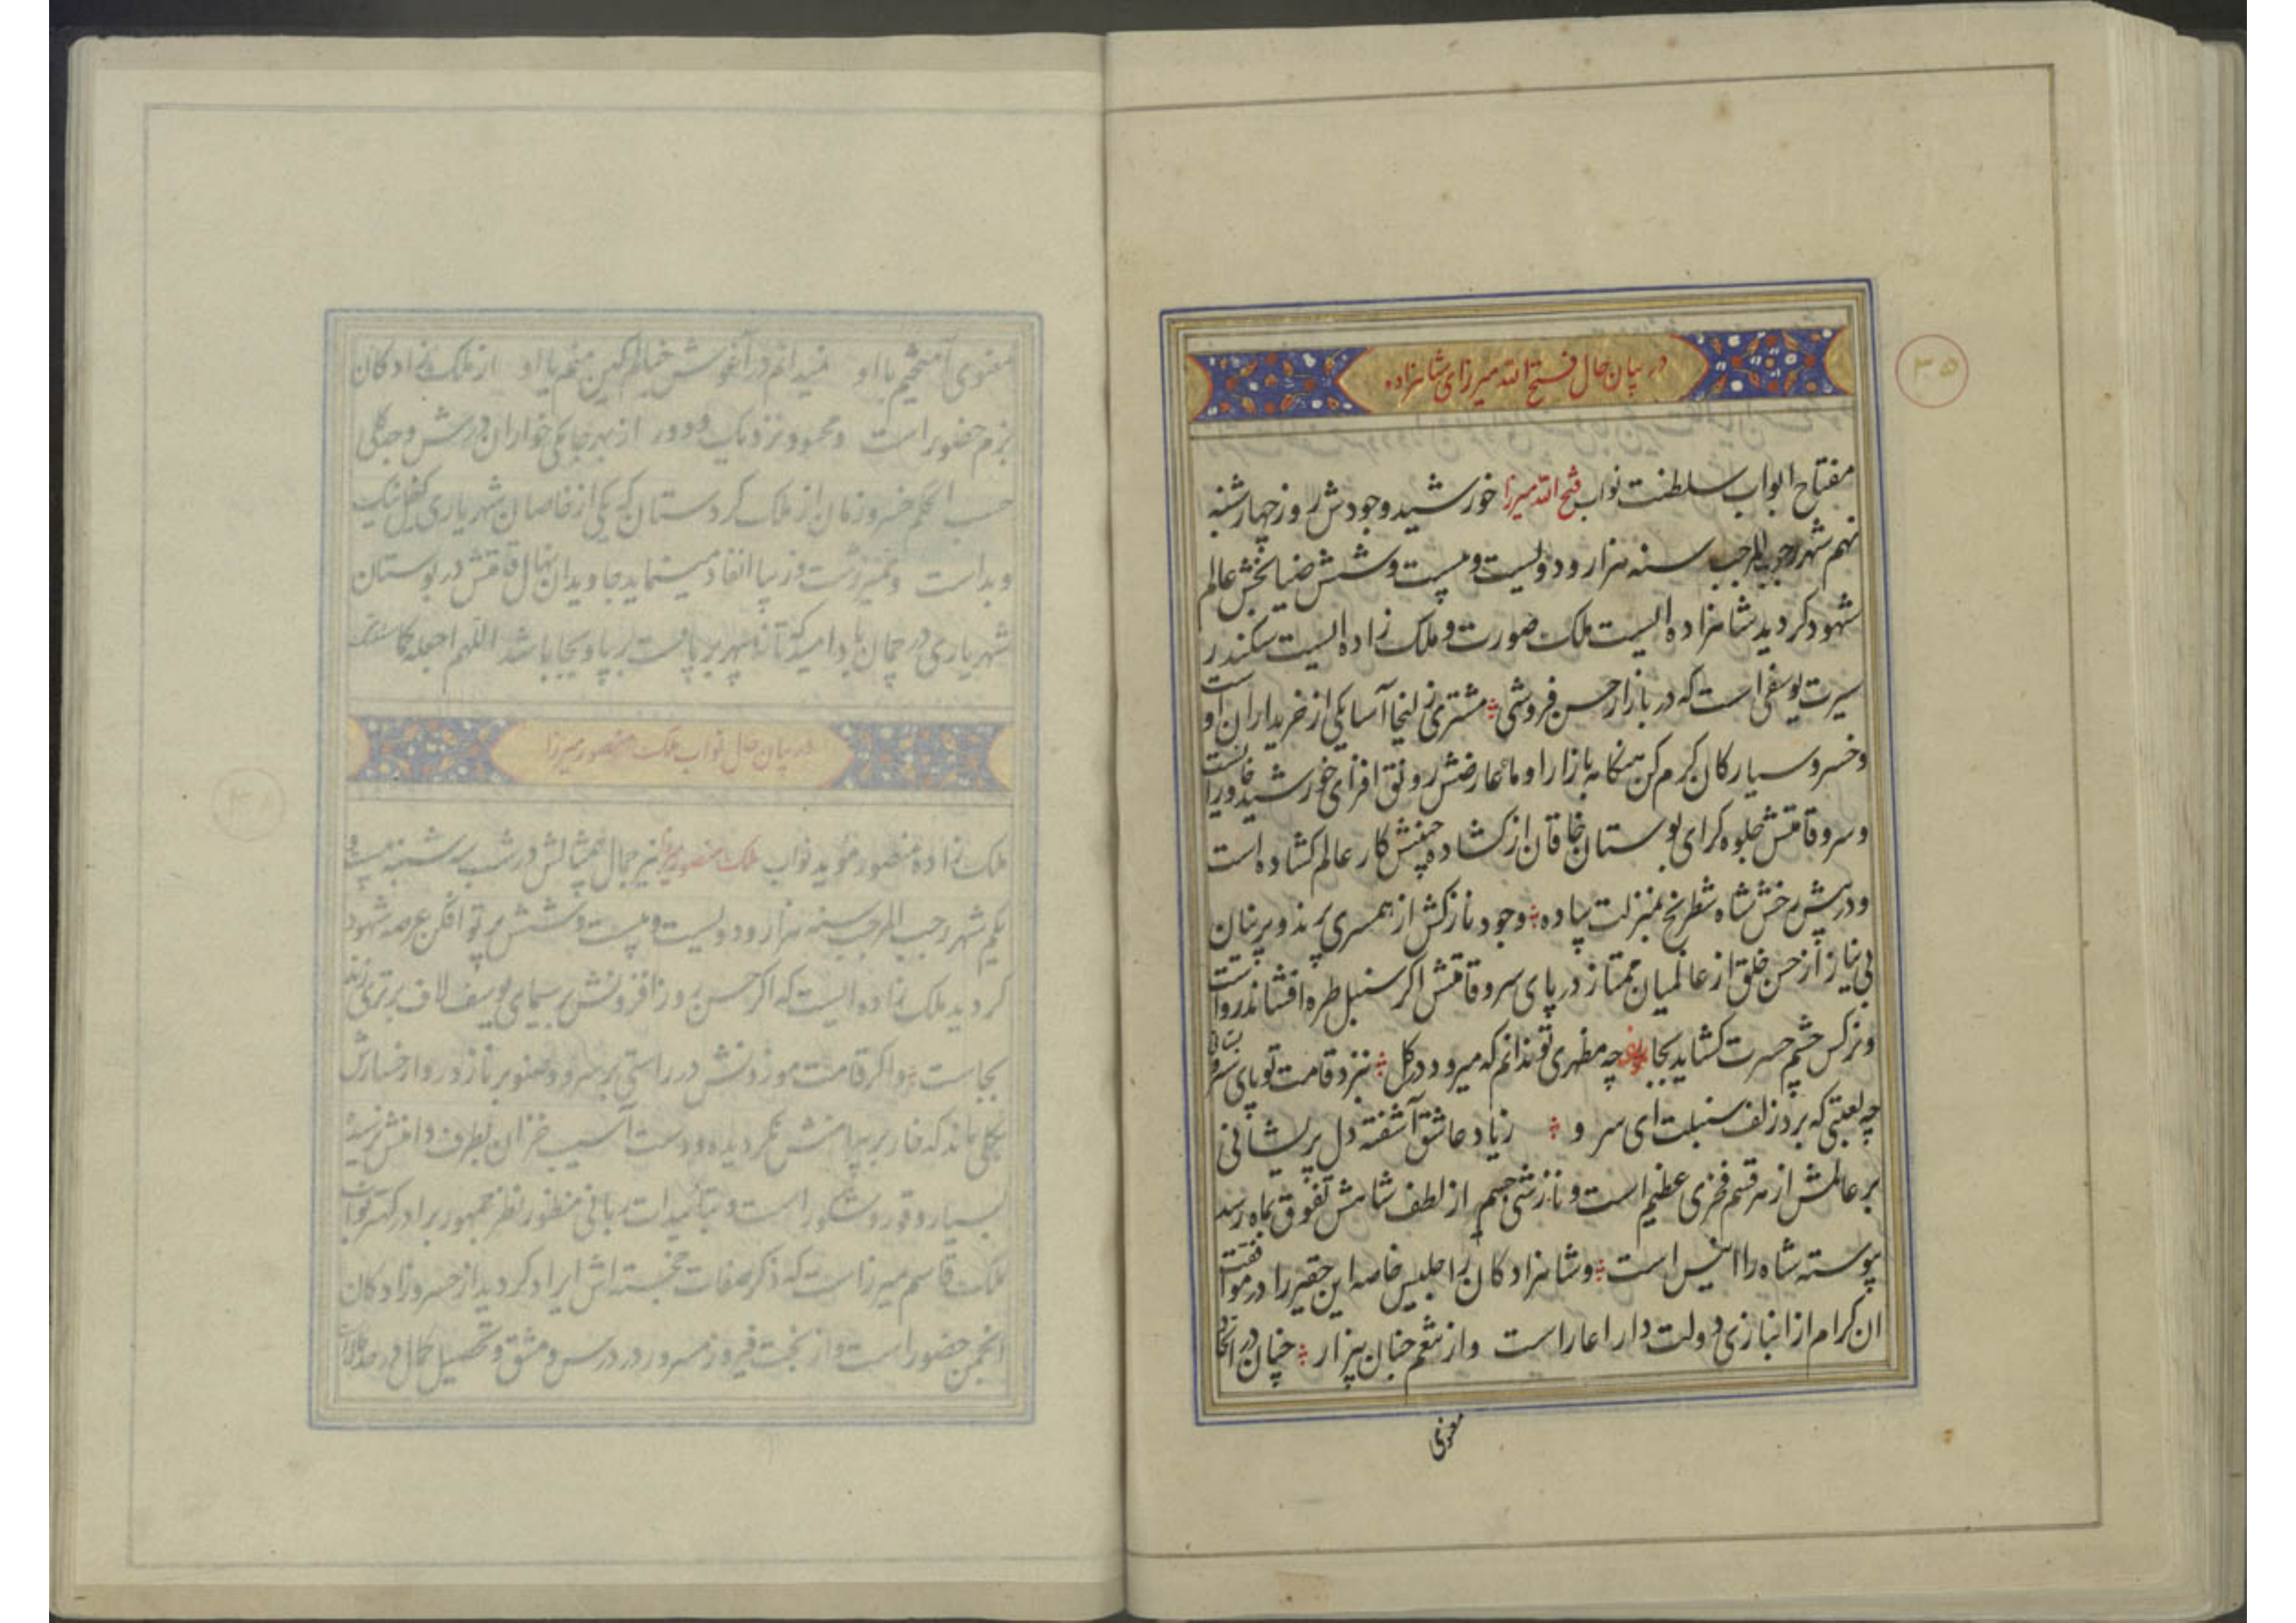 در بیان حال فتح الله میرزای شاهزاده
۳۵
مفتاح ابواب سلطنت نواب فتح الله میرزا خورشید وجودش روز چهارشنبه
نهم شهر رجب المرجب سنه هزار و دویست و بیست و شش ضیابخش عالم
شهود گردید شاهزاده ایست ملک صورت و ملک زاده ایست سکندر
سیرت یوسفی است که در بازار حسن فروشی مشتری زلیخا آسا یکی از خریداران او است
و خسرو سیارگان گرم کن هنگامه بازار او ماه عارضش رونق افزای خورشید خاوریست
و سرو قامتش جلوه گرای بوستان خاقان از گشاده جبینش کار عالم گشاده است
و در پیش رخش شاه شطرنج بمنزلت پیاده وجود نازکش از همسری پرند و پرنیان
بی نیاز از حسن خلق از عالمیان ممتاز در پای سرو قامتش اگر سنبل طره افشاند رواست
و نرگس چشم حسرت گشاید بجا چه مظهری تو ندانم که میرود در گل نزد قامت تو پای سرو بستانی
چه لعبتی که برد زلف سنبلت ای سرو زیاد عاشق آشفته دل پریشانی
بر عالمش از هر قسم فخری عظیم است و نازشی جسیم از لطف شاهش تفوق بماه رسد
پیوسته شاه را انیس است و شاهزادگان را جلیس خاصه این حقیر را در موافقت
ان کرام از انبازی دولت دارا عار است و از نعم جنان بیزار چنان در اتحاد
معنوی
معنوی آمیختیم با او نمیدانم در آغوش خیالم این منم یا او از ملک زادگان
بزم حضور است و محمود نزدیک و دور از بهر جایکی خواران درش و جدکلی
حسب الحکم خسرو زمان از ملک کردستان که یکی از خاصان شهریاری کفیل نیک
و بد است و ممیز زشت و زیبا انفاد مینماید جاویدان نهال قامتش در بوستان
شهریاری در چمان باد امید که تا نه سپهر برپاست برپا و بجا باشد اللهم اجعله
در بیان حال نواب ملک منصور میرزا
ملک زاده منصور مؤید نواب ملک منصور میرزا نیر جمال بیمثالش در شب سه شنبه بیست و
یکم شهر رجب المرجب سنه هزار و دویست و بیست و شش پرتو افکن عرصه شهود
گردید ملک زاده ایست که اگر حسن روز افزونش بر سیمای یوسف لاف برتری زند
بجاست و اگر قامت موزونش در راستی بر سرو و صنوبر ناز و زور وا رخسارش
بگلی ماند که خار بر پیرامنش نگردیده و دست آسیب خزان بطرف دامنش نرسیده
بسیار وقور و شکور است و بتائیدات ربانی منظور نظر جمهور برادر کهتر نواب
ملک قاسم میرزاست که ذکر صفات خجسته اش ایراد گردید از خسرو زادگان
انجمن حضور است و از بخت فیروز مسرور در درس و مشق و تحصیل کمال